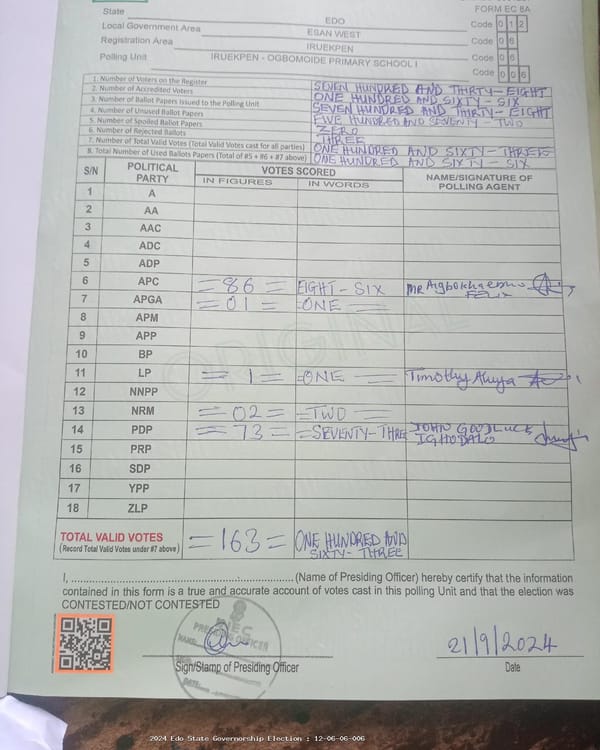 FORM EC 8A
State EDO Code 0 1 2
Local Government Area ESAN WEST Code 0 6
Registration Area IRUEKPEN Code 0 6
Polling Unit IRUEKPEN - OGBOMOIDE PRIMARY SCHOOL I Code 0 0 6
1. Number of Voters on the Register SEVEN HUNDRED AND THIRTY-EIGHT
2. Number of Accredited Voters ONE HUNDRED AND SIXTY-SIX
3. Number of Ballot Papers Issued to the Polling Unit SEVEN HUNDRED AND THIRTY-EIGHT
4. Number of Unused Ballot Papers FIVE HUNDRED AND SEVENTY-TWO
5. Number of Spoiled Ballot Papers ZERO
6. Number of Rejected Ballots THREE
7. Number of Total Valid Votes (Total Valid Votes cast for all parties) ONE HUNDRED AND SIXTY-THREE
8. Total Number of Used Ballots Papers (Total of #5 + #6 + #7 above) ONE HUNDRED AND SIXTY-SIX
S/N POLITICAL PARTY VOTES SCORED NAME/SIGNATURE OF POLLING AGENT
IN FIGURES IN WORDS
1 A
2 AA
3 AAC
4 ADC
5 ADP
6 APC =86= EIGHT-SIX MR FELIX
7 APGA =01= =ONE=
8 APM
9 APP
10 BP
11 LP =1= =ONE= Timothy
12 NNPP
13 NRM =02= =TWO=
14 PDP =73= =SEVENTY-THREE JOHN GOODLUCK IGHODALO
15 PRP
16 SDP
17 YPP
18 ZLP
ORIGINAL
TOTAL VALID VOTES =163= ONE HUNDRED AND
(Record Total Valid Votes under #7 above) SIXTY-THREE
I, ........................................................(Name of Presiding Officer) hereby certify that the information
contained in this form is a true and accurate account of votes cast in this polling Unit and that the election was
CONTESTED/NOT CONTESTED
INEC
PRESIDING OFFICER
NAME:
DATE:
21/9/2024
Sign/Stamp of Presiding Officer Date
2024 Edo State Governorship Election : 12-06-06-006